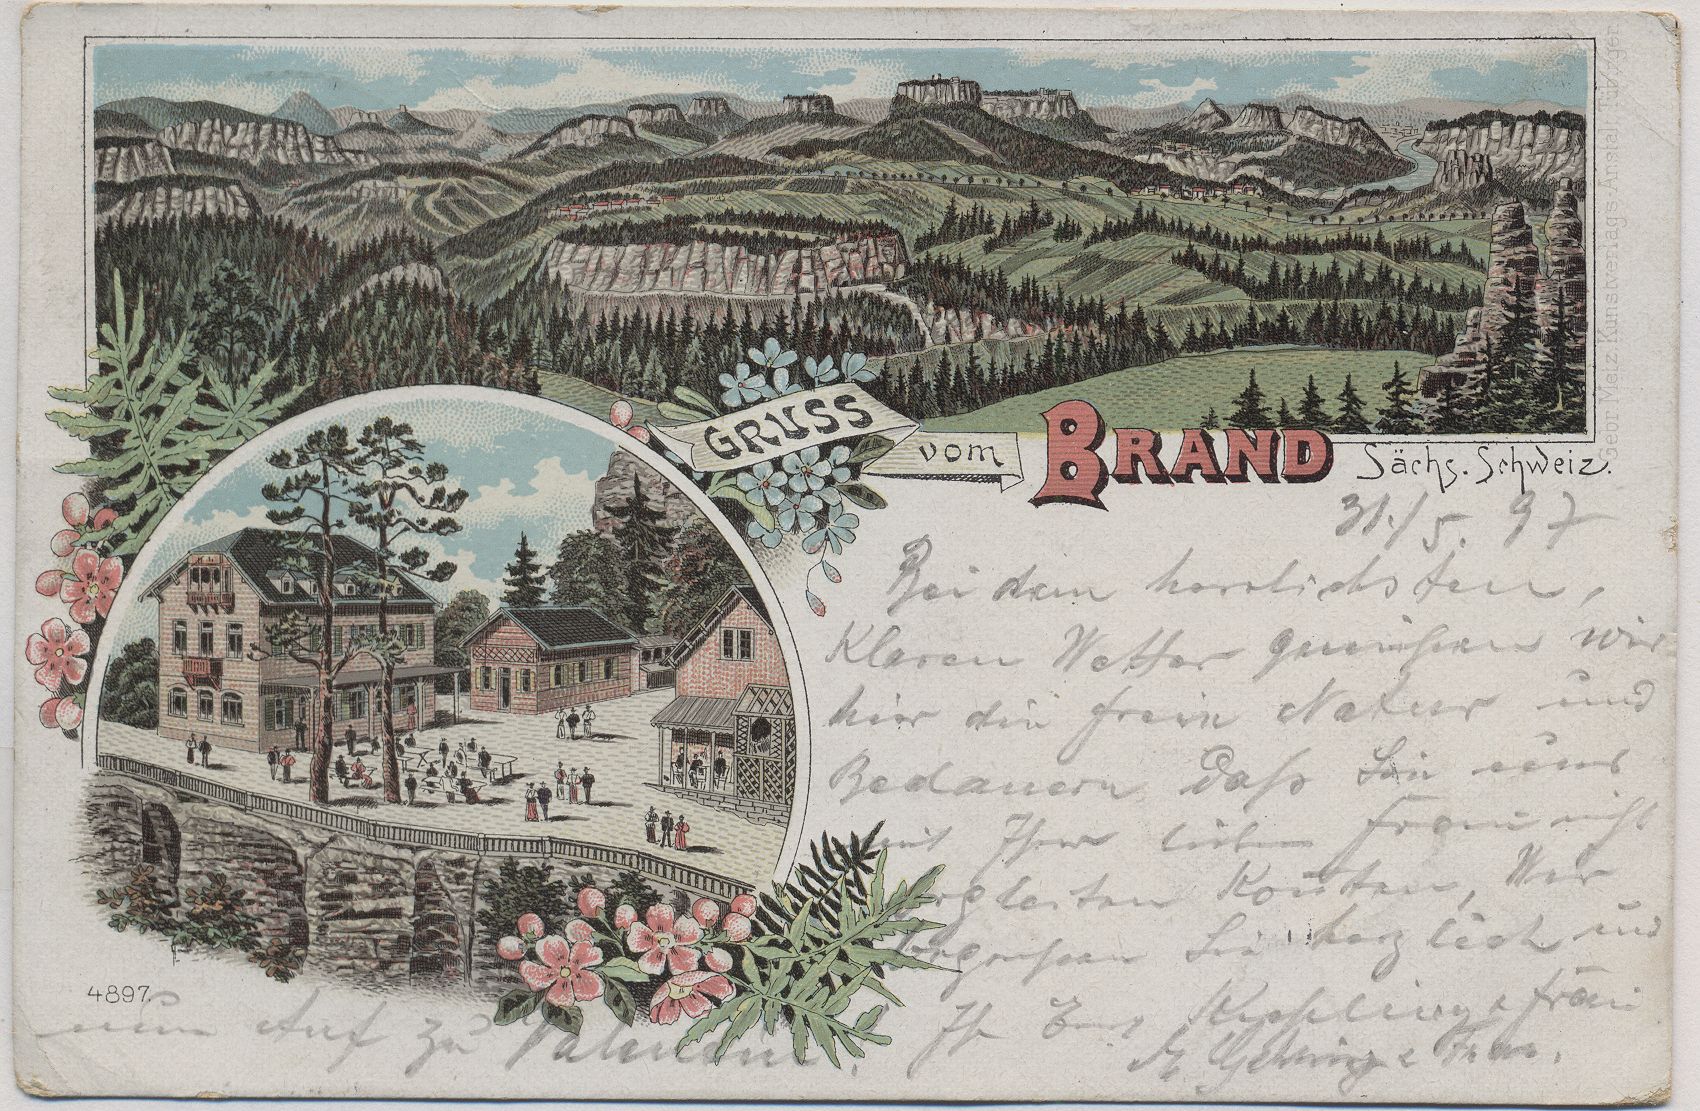 GRUSS vom BRAND Sächs. Schweiz.
Gebr. Metz Kunstverlags-Anstalt, Tübingen
31./5. 97
Bei dem herrlichsten,
Klaren Wetter genießen wir
hier die freie Natur und
Bedauern Daß Sie uns
mit Ihrer lieben Frau nicht
begleiten Konten, Wir
begrüßen Sie herzlich und
Ihr & Frau
& Frau.
4897.
nun Auf zu